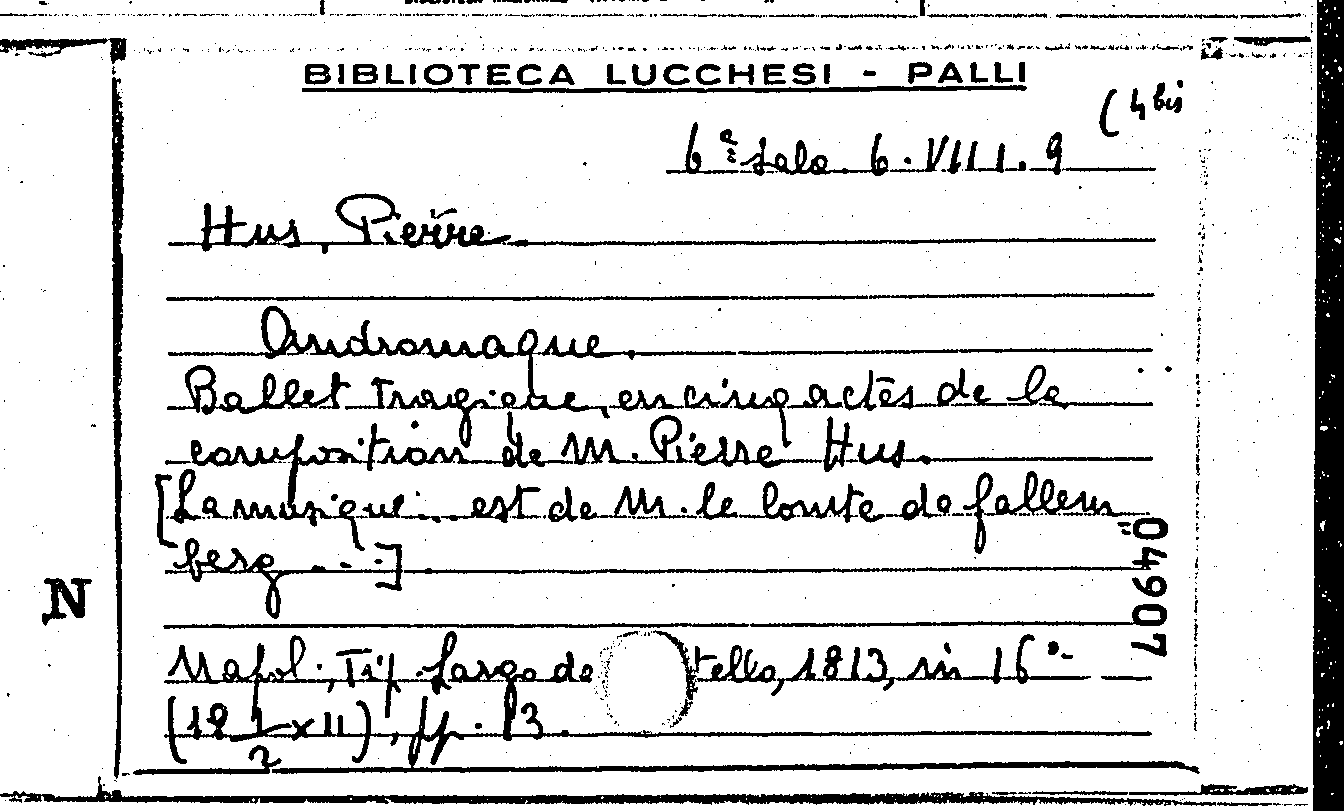 BIBLIOTECA LUCCHESI - PALLI
(4 bis
6ª Sala. 6. VIII. 9
Hus, Pierre
Andromaque.
Ballet Tragique, en cinq actes de la
composition de M. Pierre Hus.
[La musique... est de M. le Comte de Gallem
berg ...].
04907
N
Napol., Tip. Largo de tello, 1813, in 16°-
(18 1/2 x 11), pp. 13.